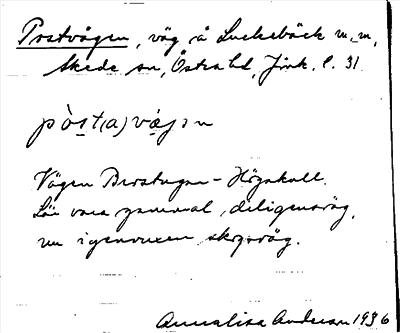 Postvägen, väg å Luckebäck m.m,
Skede sn, Östra hd, Jönk. l. 31.
pòst(a)vägən
Vägen Brostugan – Högakull.
Lär vara gammal diligensväg,
nu igenvuxen skogsväg.
Annalisa Anderson 1936